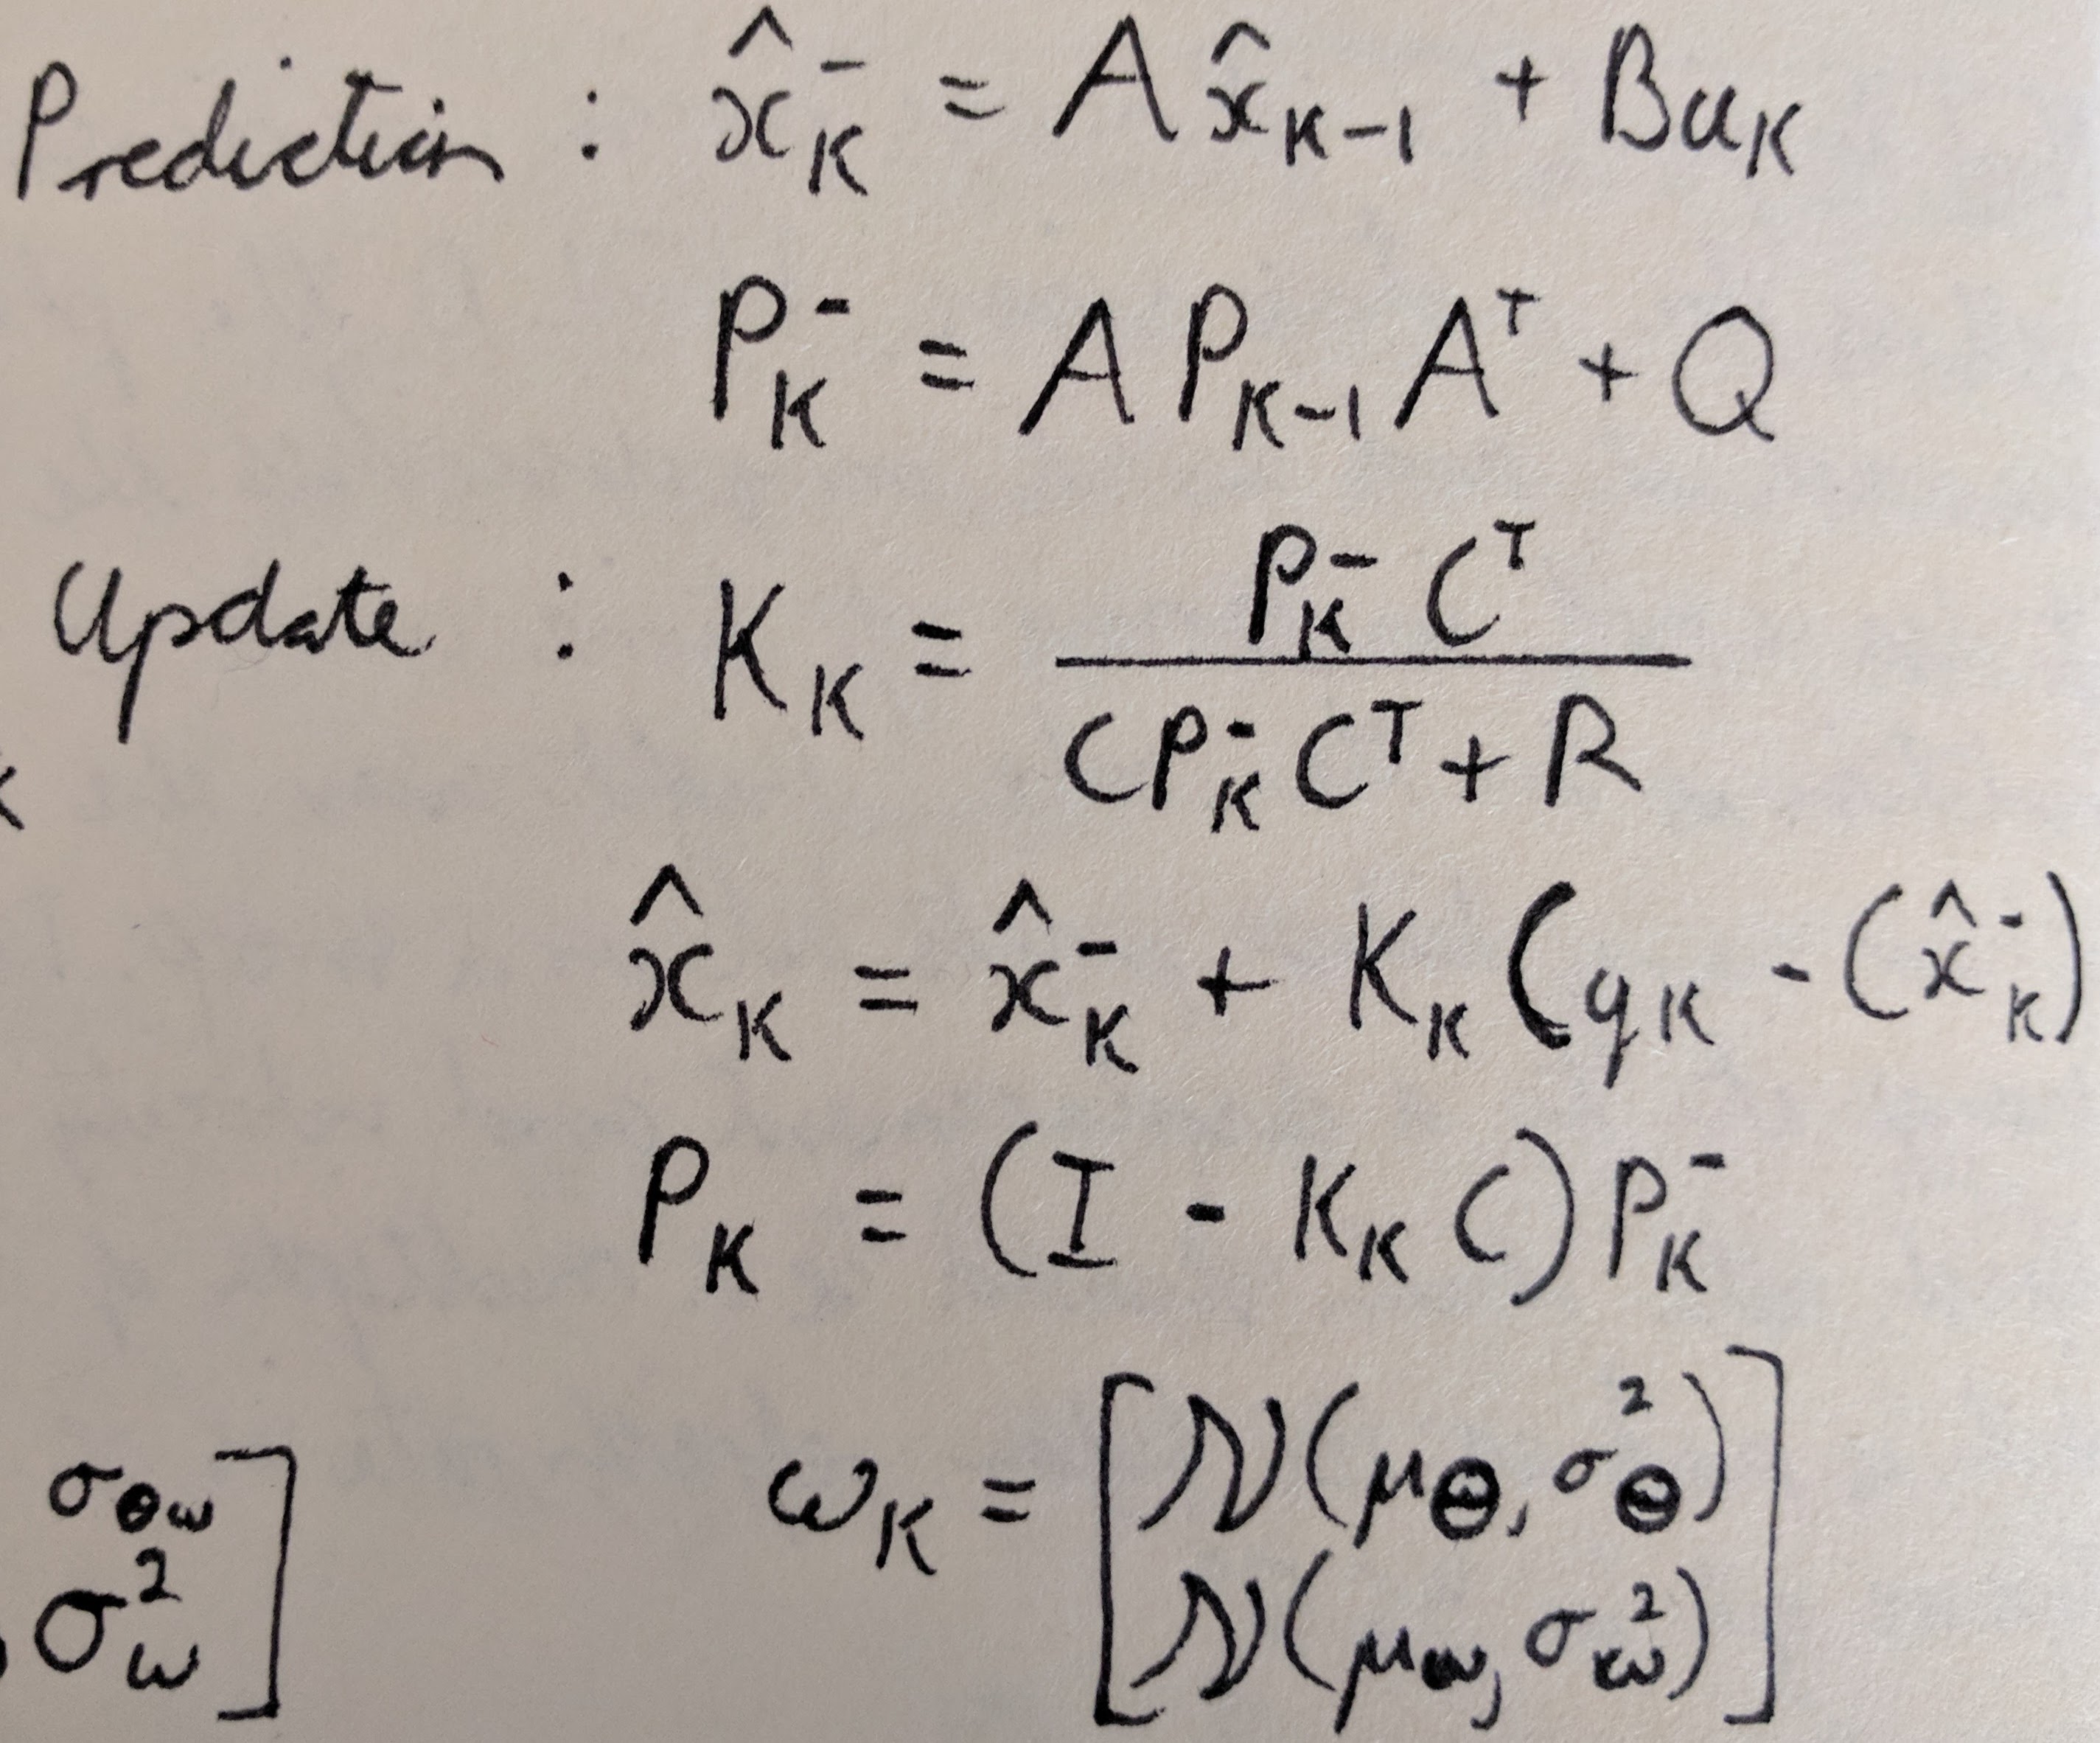 Prediction : x̂ₖ⁻ = A x̂ₖ₋₁ + Buₖ
Pₖ⁻ = A Pₖ₋₁ Aᵀ + Q
Update : Kₖ = Pₖ⁻ Cᵀ / (CPₖ⁻ Cᵀ + R)
x̂ₖ = x̂ₖ⁻ + Kₖ (yₖ - Cx̂ₖ⁻)
Pₖ = (I - Kₖ C) Pₖ⁻
σ_θω ]
σ_ω² ]
ωₖ = [ 𝒩(μ_θ, σ_θ²)
𝒩(μ_ω, σ_ω²) ]